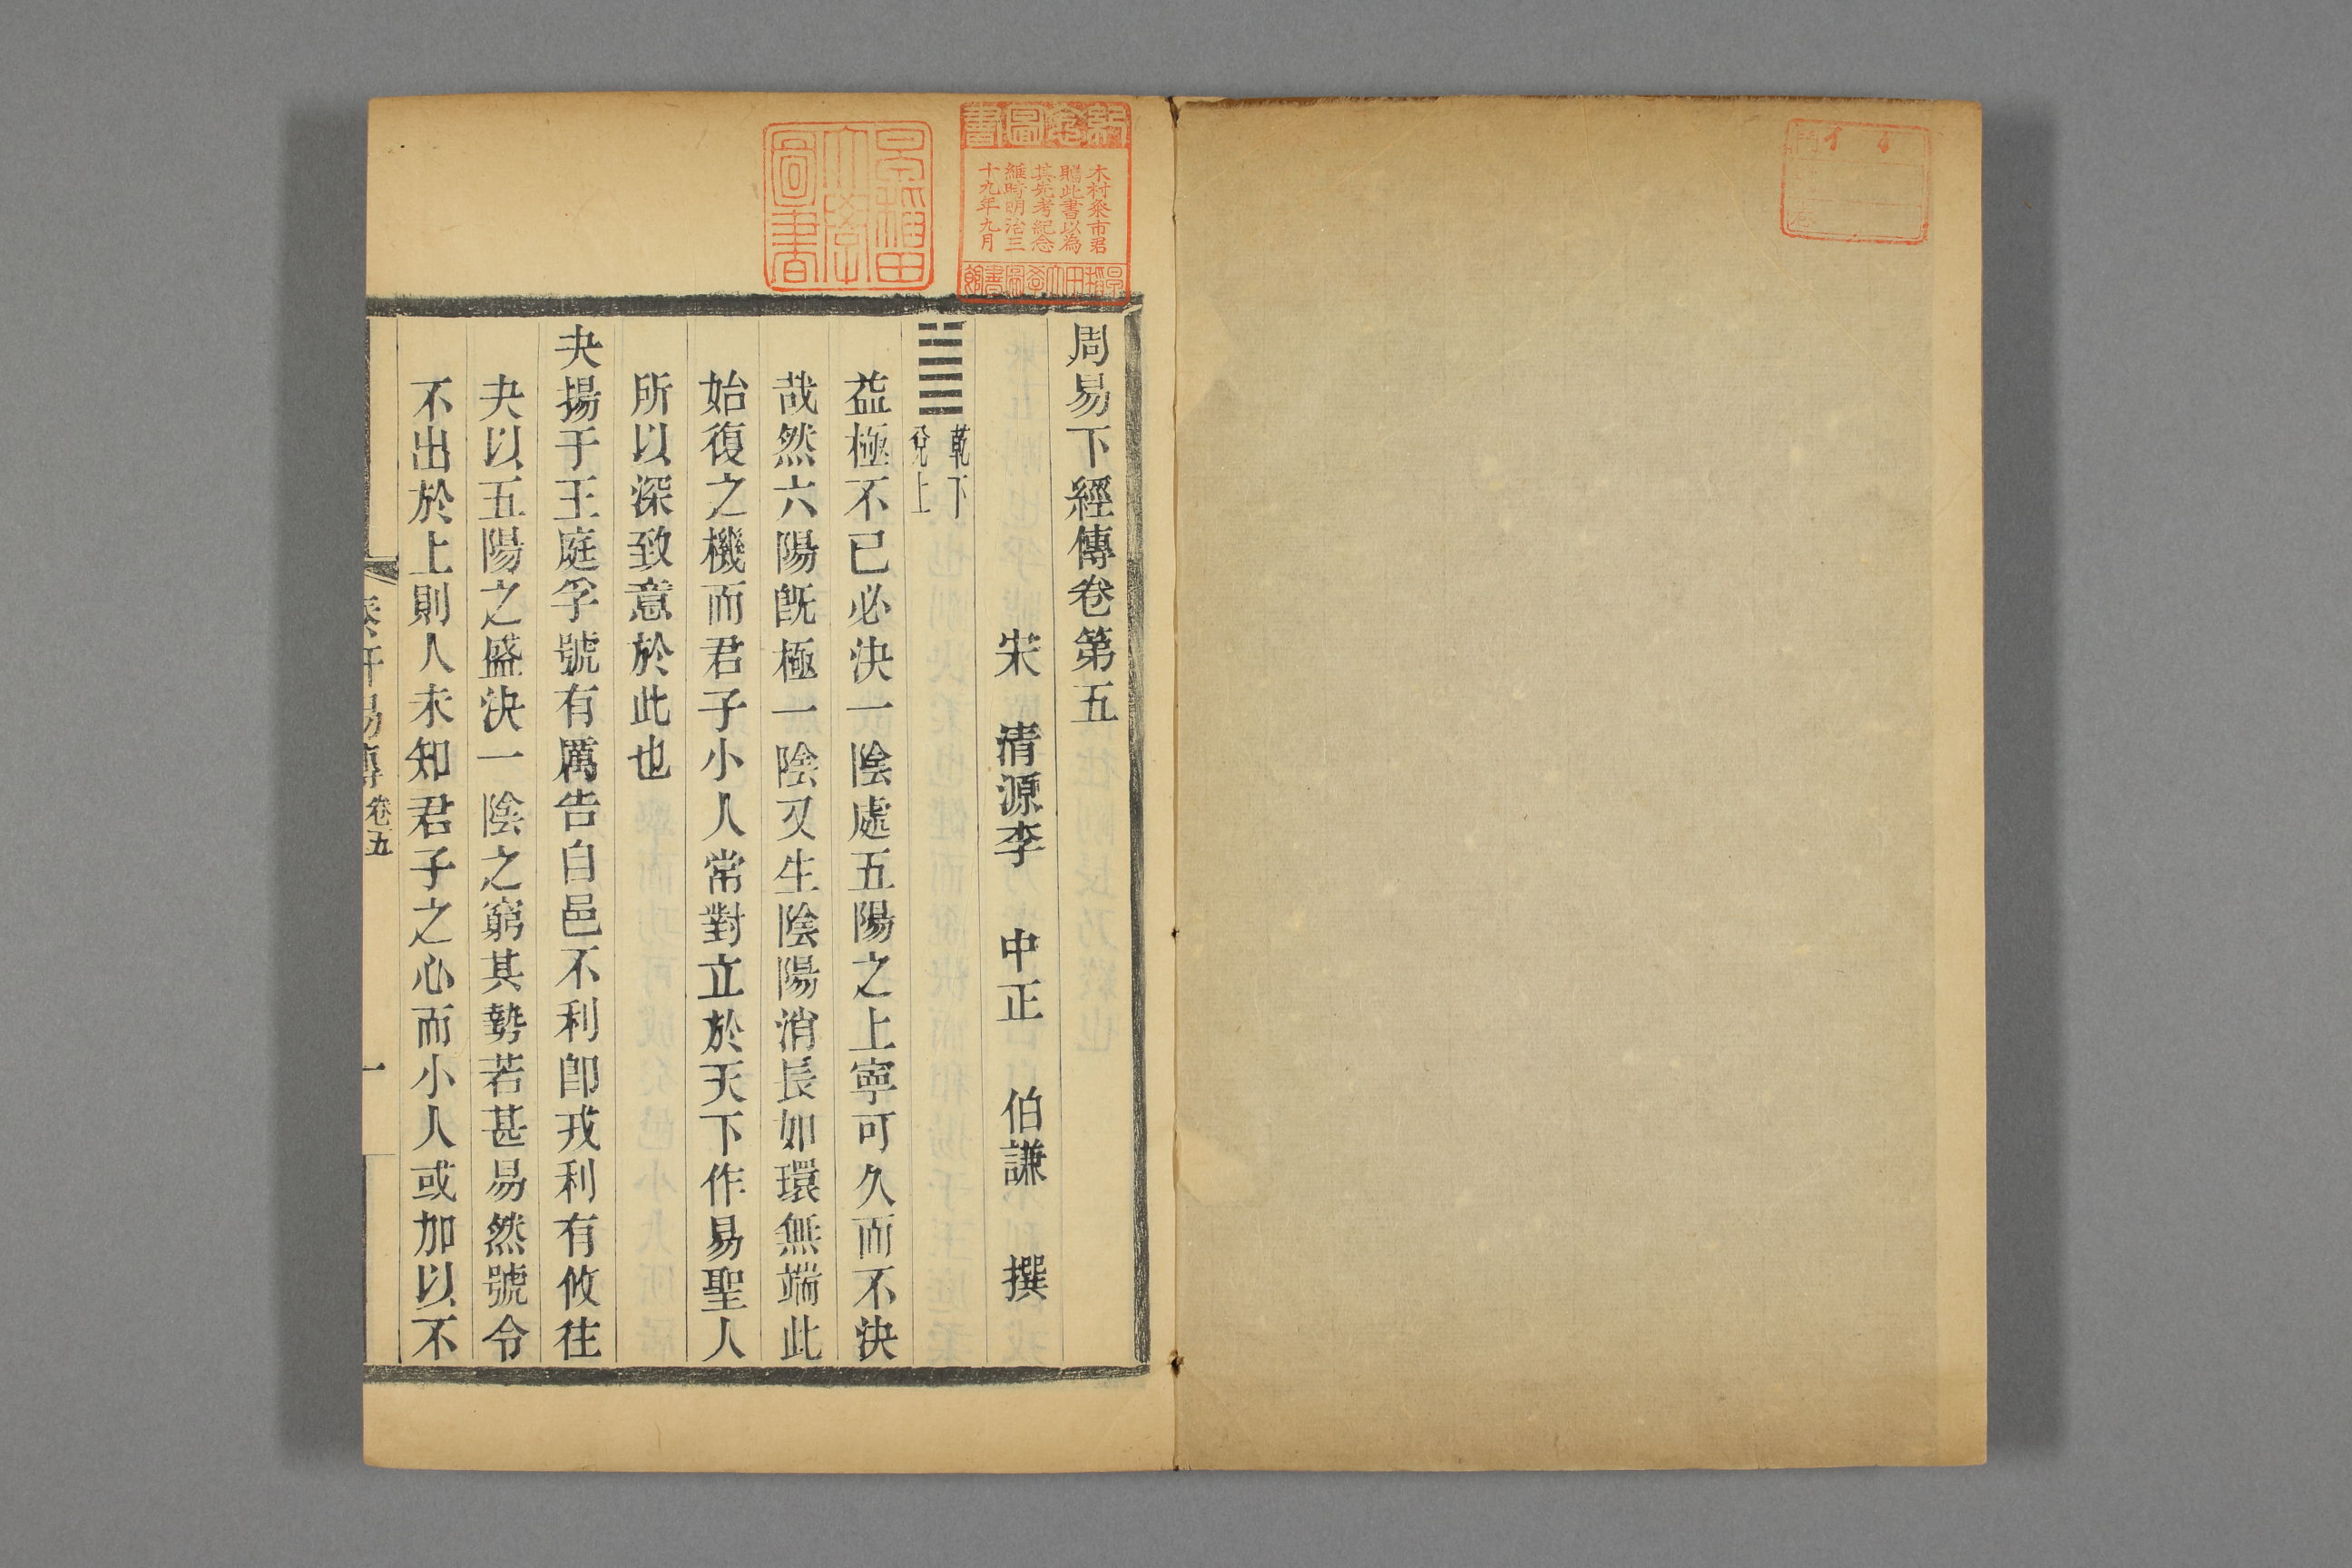 周易下經傳卷第五
宋 清源李 中正 伯謙 撰
乾下
兌上
益極不已必決一陰處五陽之上寧可久而不決
哉然六陽旣極一陰又生陰陽消長如環無端此
始復之機而君子小人常對立於天下作易聖人
所以深致意於此也
夬揚于王庭孚號有厲告自邑不利卽戎利有攸往
夬以五陽之盛決一陰之窮其勢若甚易然號令
不出於上則人未知君子之心而小人或加以不
易傳
卷五
一
新宮圖書
木村粂市君
贈此書以為
其先考紀念
維時明治三
十九年九月
早稲田大學圖書館
早稲田
大學
圖書